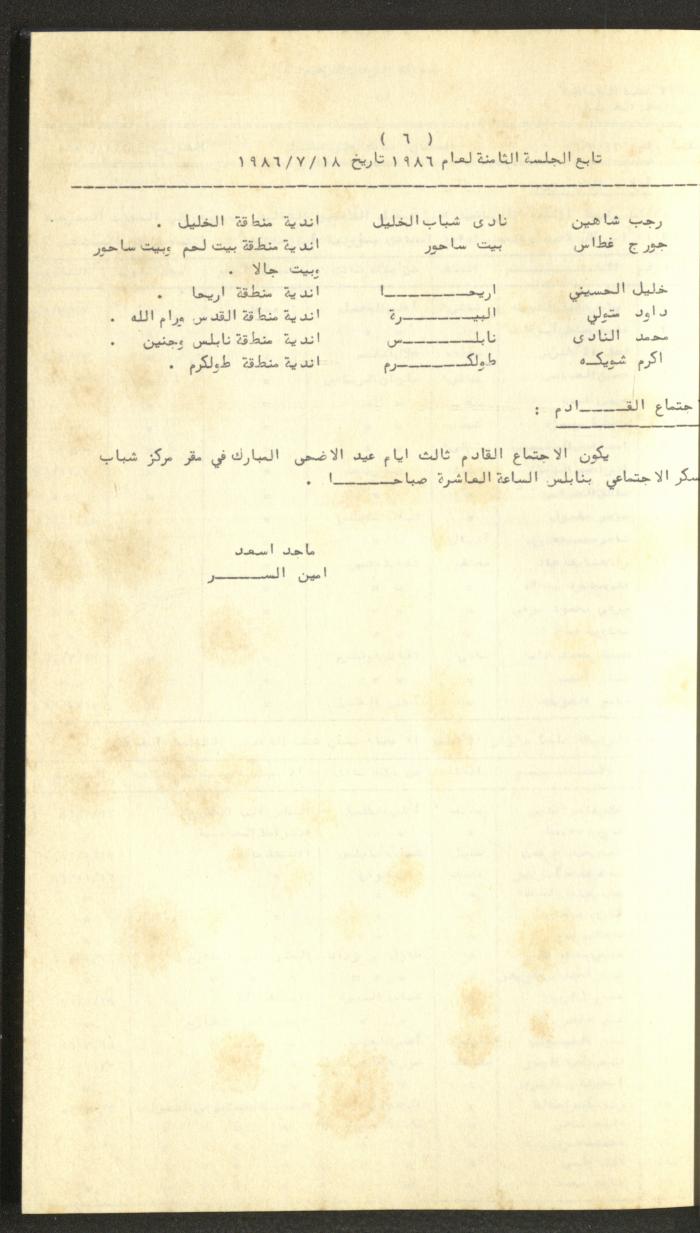 ( ٦ )
تابع الجلسة الثامنة لعام ١٩٨٦ تاريخ ١٩٨٦/٧/١٨
رجب شاهين نادى شباب الخليل اندية منطقة الخليل .
جورج غطاس بيت ساحور اندية منطقة بيت لحم وبيت ساحور
وبيت جالا .
خليل الحسيني اريحــــا اندية منطقة اريحا .
داود متولي البيــــرة اندية منطقة القدس ورام الله .
محمد النادى نابلــــس اندية منطقة نابلس وجنين .
اكرم شويكـه طولكــــرم اندية منطقة طولكرم .
جتماع القـــادم :
يكون الاجتماع القادم ثالث ايام عيد الاضحى المبارك في مقر مركز شباب
سكر الاجتماعي بنابلس الساعة العاشرة صباحــــا .
ماجد اسعد
امين الســــر